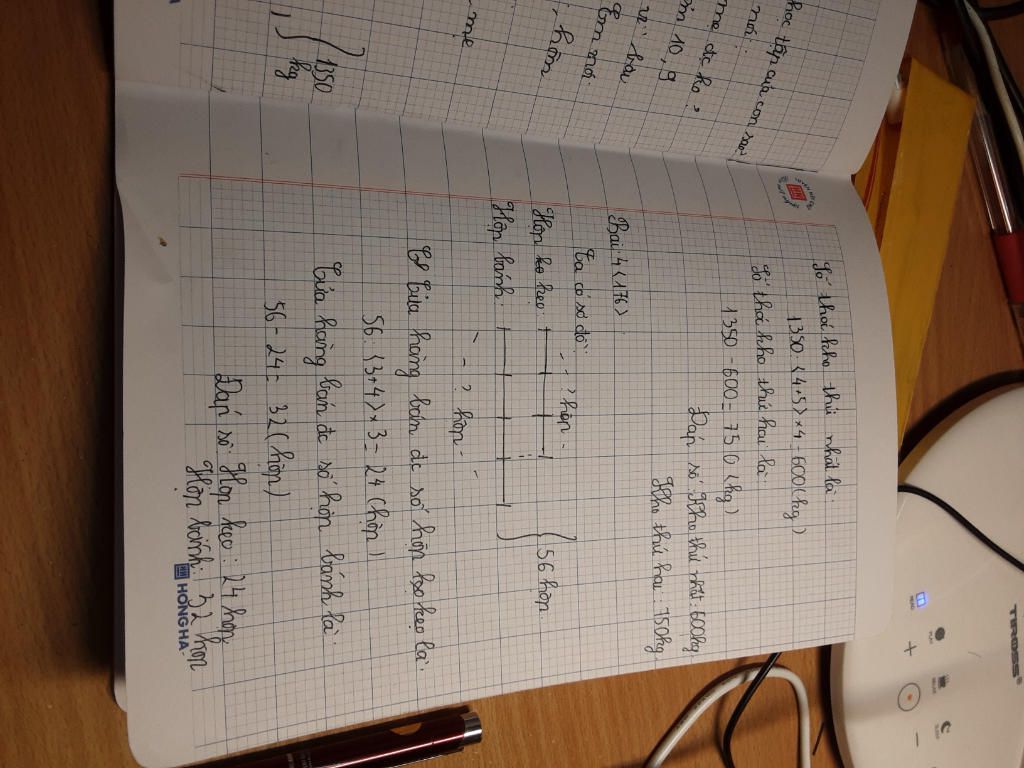 học tập của con sau
nói:
me đc ho,
10, 9
1350
kg
Số thóc kho thứ nhất là:
1350: (4+5) × 4 = 600 (kg)
Số thóc kho thứ hai là:
1350 - 600 = 750 (kg)
Đáp số: Kho thứ nhất: 600kg
Kho thứ hai: 750kg
Bài 4 (176)
Ta có sơ đồ:
? hộp
Hộp kẹo:
56 hộp
Hộp bánh:
? hộp
Cửa hàng bán đc số hộp kẹo là:
56: (3+4) × 3 = 24 (hộp)
Cửa hàng bán đc số hộp bánh là:
56 - 24 = 32 (hộp)
Đáp số: Hộp kẹo: 24 hộp
Hộp bánh: 32 hộp
HONG HA
TIROSS